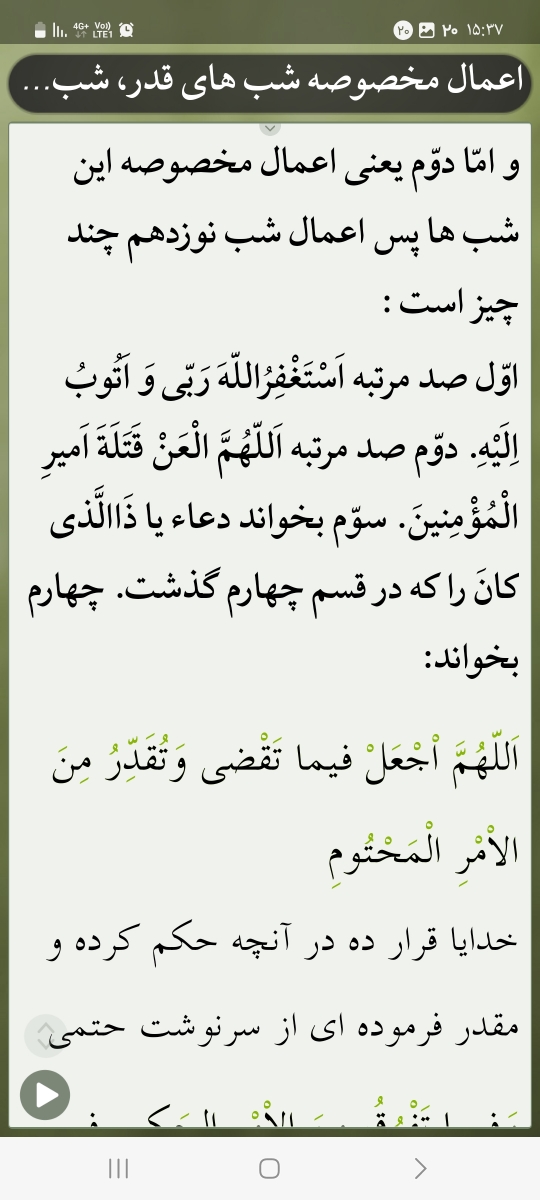 ۱۵:۳۷ ۲۰ ۲۰ Vo)) LTE1 4G+
اعمال مخصوصه شب های قدر، شب...
و امّا دوّم یعنی اعمال مخصوصه این
شب ها پس اعمال شب نوزدهم چند
چیز است :
اوّل صد مرتبه اَسْتَغْفِرُاللّهَ رَبّی وَ اَتُوبُ
اِلَیْهِ. دوّم صد مرتبه اَللّهُمَّ الْعَنْ قَتَلَةَ اَمیرِ
الْمُؤْمِنینَ. سوّم بخواند دعاء یا ذَاالَّذی
کانَ را که در قسم چهارم گذشت. چهارم
بخواند:
اَللّهُمَّ اْجْعَلْ فیما تَقْضی وَتُقَدِّرُ مِنَ
الاْمْرِ الْمَحْتُومِ
خدایا قرار ده در آنچه حکم کرده و
مقدر فرموده ای از سرنوشت حتمی